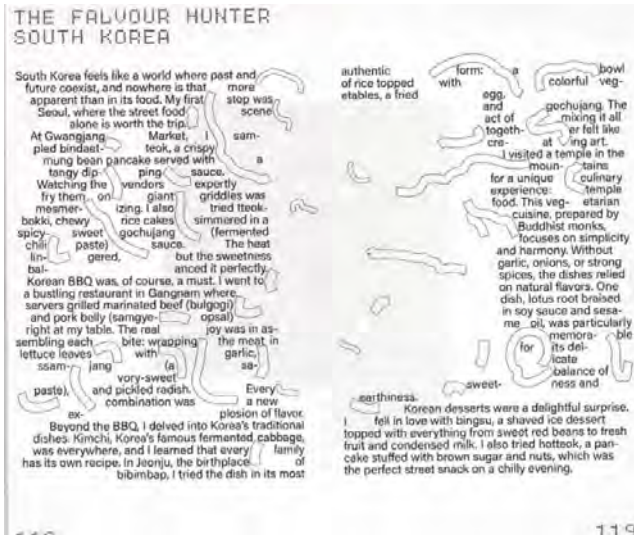 THE FALVOUR HUNTER
SOUTH KOREA
South Korea feels like a world where past and
future coexist, and nowhere is that more
apparent than in its food. My first stop was
Seoul, where the street food scene
alone is worth the trip.
At Gwangjang Market, I sam-
pled bindaet- teok, a crispy
mung bean pancake served with a
tangy dip- ping sauce.
Watching the vendors expertly
fry them on giant griddles was
mesmer- izing. I also tried tteok-
bokki, chewy rice cakes simmered in a
spicy- sweet gochujang (fermented
chili paste) sauce. The heat
lin- gered, but the sweetness
bal- anced it perfectly.
Korean BBQ was, of course, a must. I went to
a bustling restaurant in Gangnam where
servers grilled marinated beef (bulgogi)
and pork belly (samgye- opsal)
right at my table. The real joy was in as-
sembling each bite: wrapping the meat in
lettuce leaves with garlic,
ssam- jang (a sa-
vory-sweet
paste), and pickled radish. Every
combination was a new
ex- plosion of flavor.
Beyond the BBQ, I delved into Korea's traditional
dishes. Kimchi, Korea's famous fermented cabbage,
was everywhere, and I learned that every family
has its own recipe. In Jeonju, the birthplace of
bibimbap, I tried the dish in its most
authentic form: a bowl
of rice topped with colorful veg-
etables, a fried egg,
and gochujang. The
act of mixing it all
togeth- er felt like
cre- at ing art.
I visited a temple in the
moun- tains
for a unique culinary
experience: temple
food. This veg- etarian
cuisine, prepared by
Buddhist monks,
focuses on simplicity
and harmony. Without
garlic, onions, or strong
spices, the dishes relied
on natural flavors. One
dish, lotus root braised
in soy sauce and sesa-
me oil, was particularly
memora- ble
for its del-
icate
balance of
sweet- ness and
earthiness.
Korean desserts were a delightful surprise.
I fell in love with bingsu, a shaved ice dessert
topped with everything from sweet red beans to fresh
fruit and condensed milk. I also tried hotteok, a pan-
cake stuffed with brown sugar and nuts, which was
the perfect street snack on a chilly evening.
119